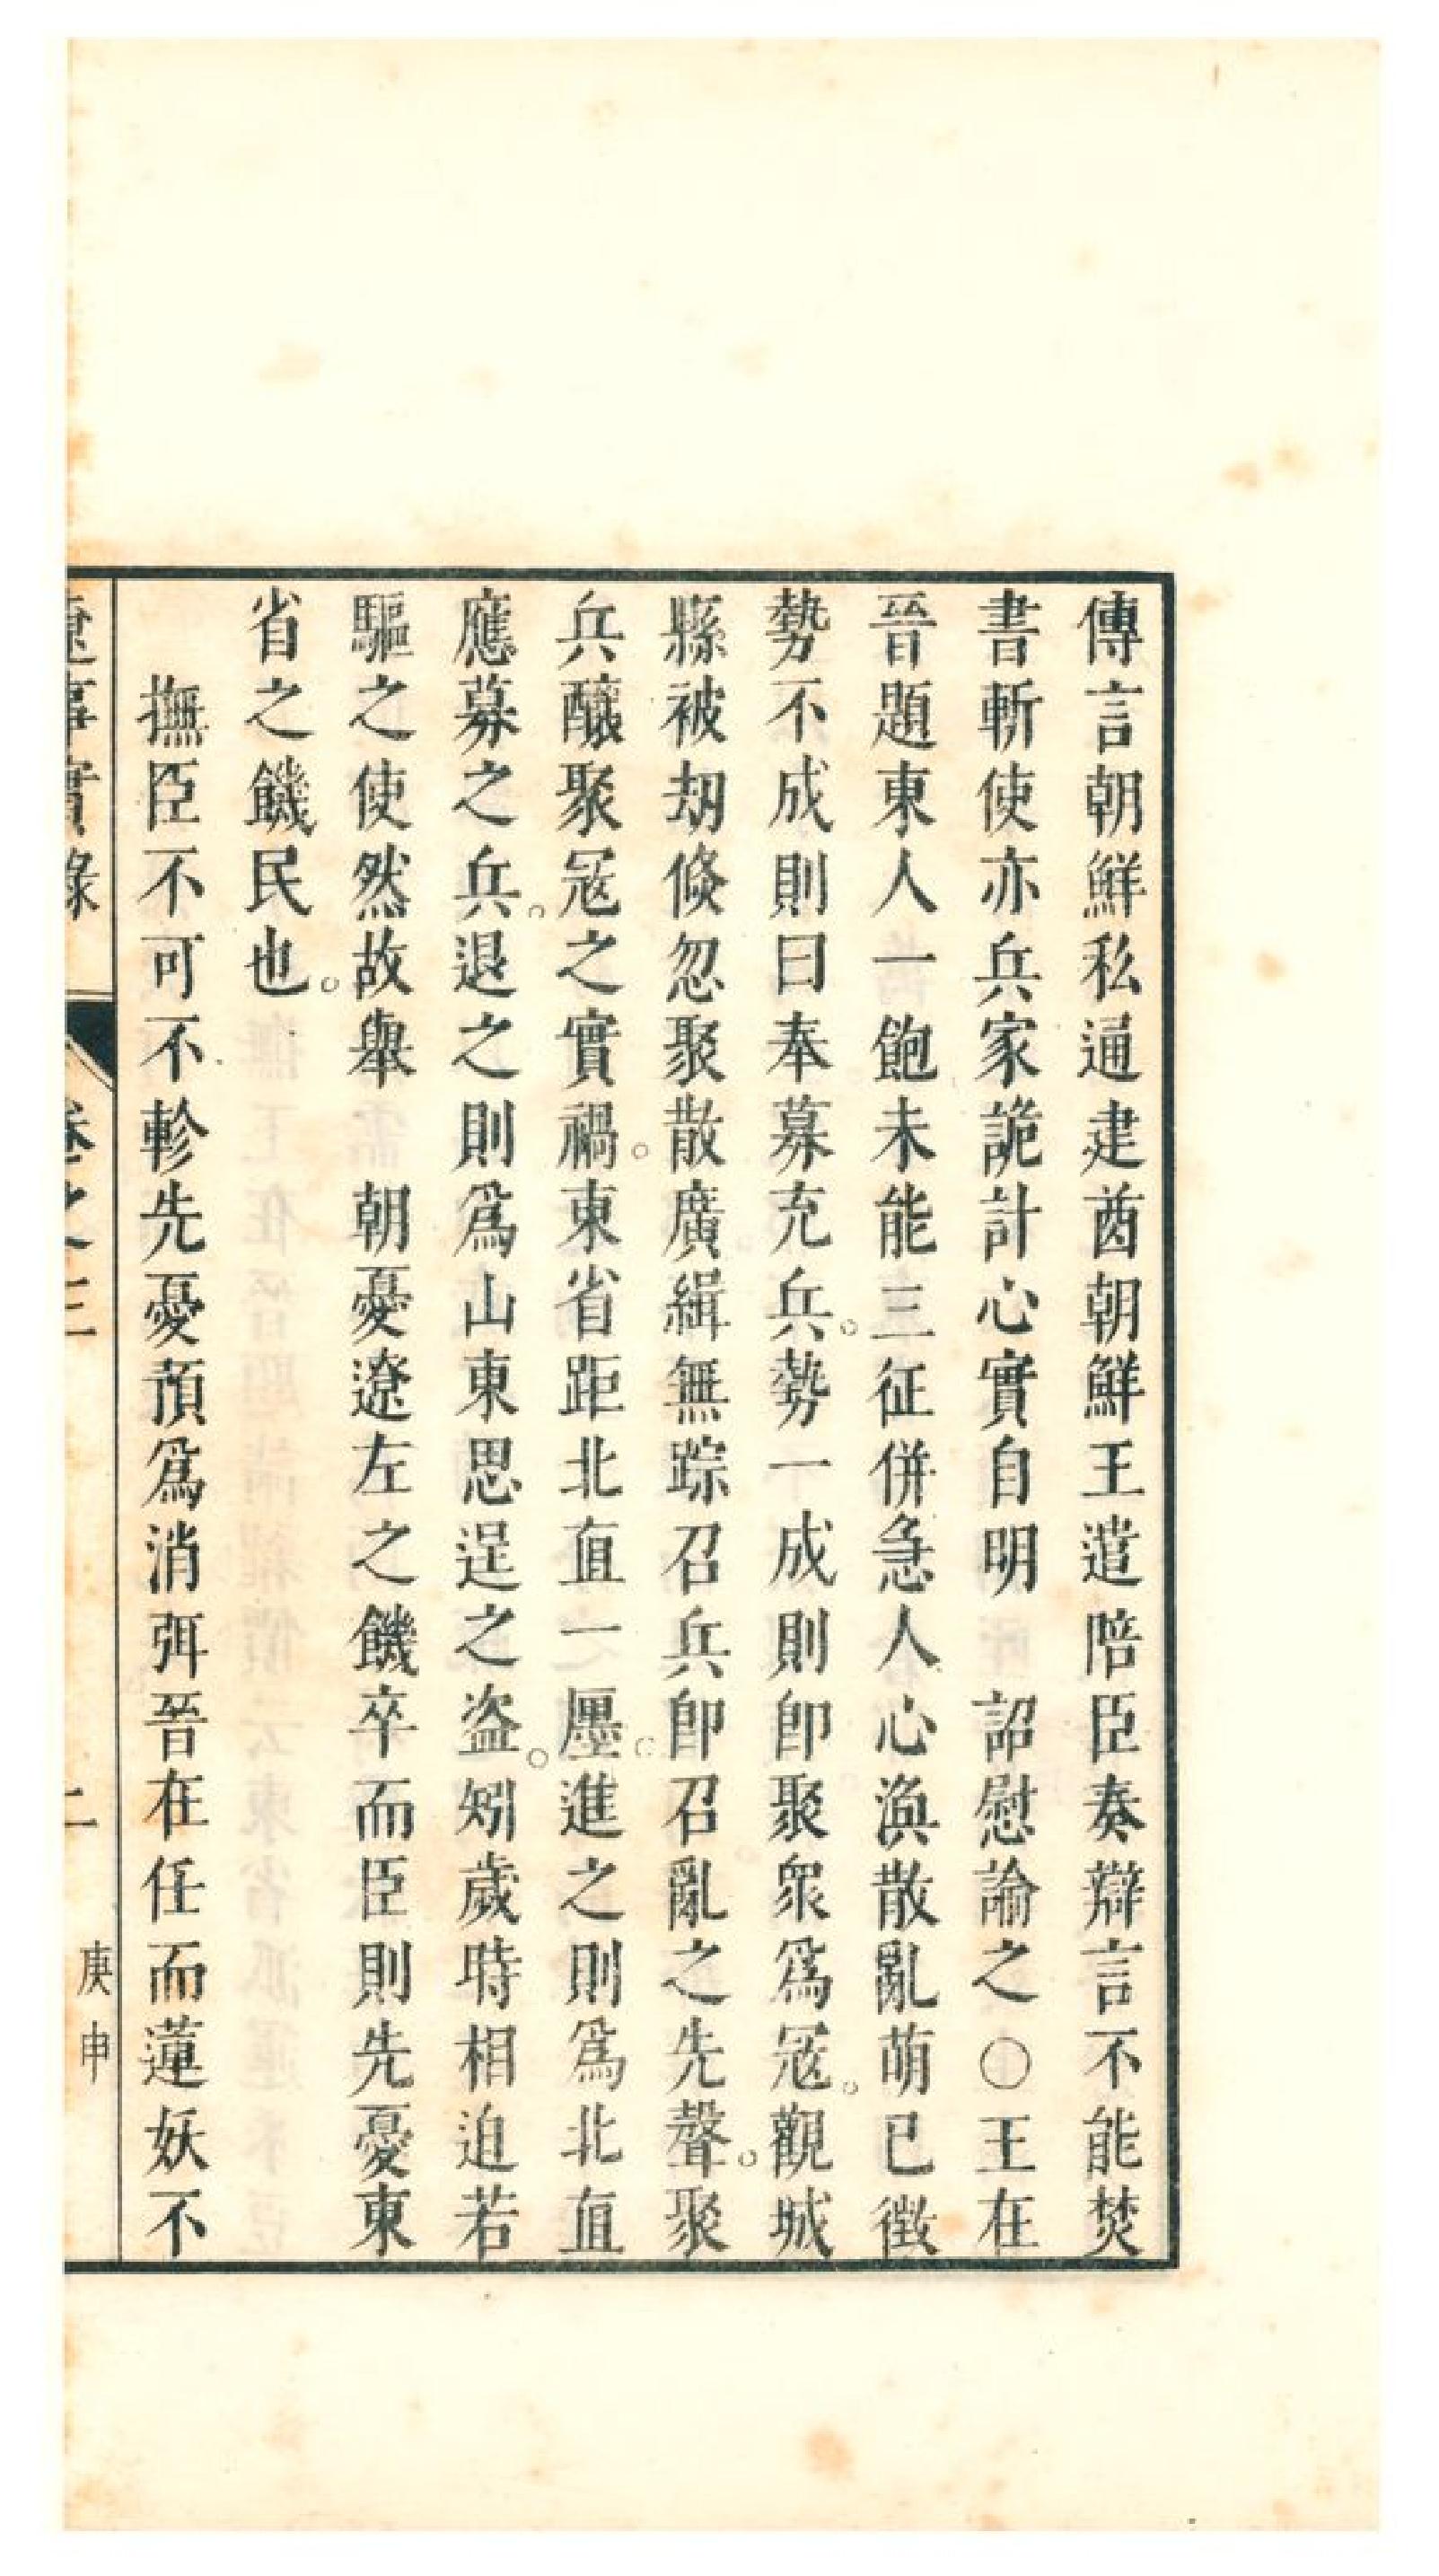 傳言朝鮮私通建酋朝鮮王遣陪臣奏辯言不能焚
書斬使亦兵家詭計心實自明　詔慰諭之○王在
晉題東人一飽未能三征併急人心渙散亂萌已徵
勢不成則曰奉募充兵。勢一成則卽聚衆爲冦。觀城
縣被刼倐忽聚散廣緝無踪召兵卽召亂之先聲。聚
兵釀聚冦之實禍。東省距北直一壥。進之則爲北直
應募之兵。退之則爲山東思逞之盗。矧歲時相迫若
驅之使然故舉　朝憂遼左之饑卒而臣則先憂東
省之饑民也。
撫臣不可不軫先憂預爲消弭晉在任而蓮妖不
遼事實錄　卷之三　二　庚申